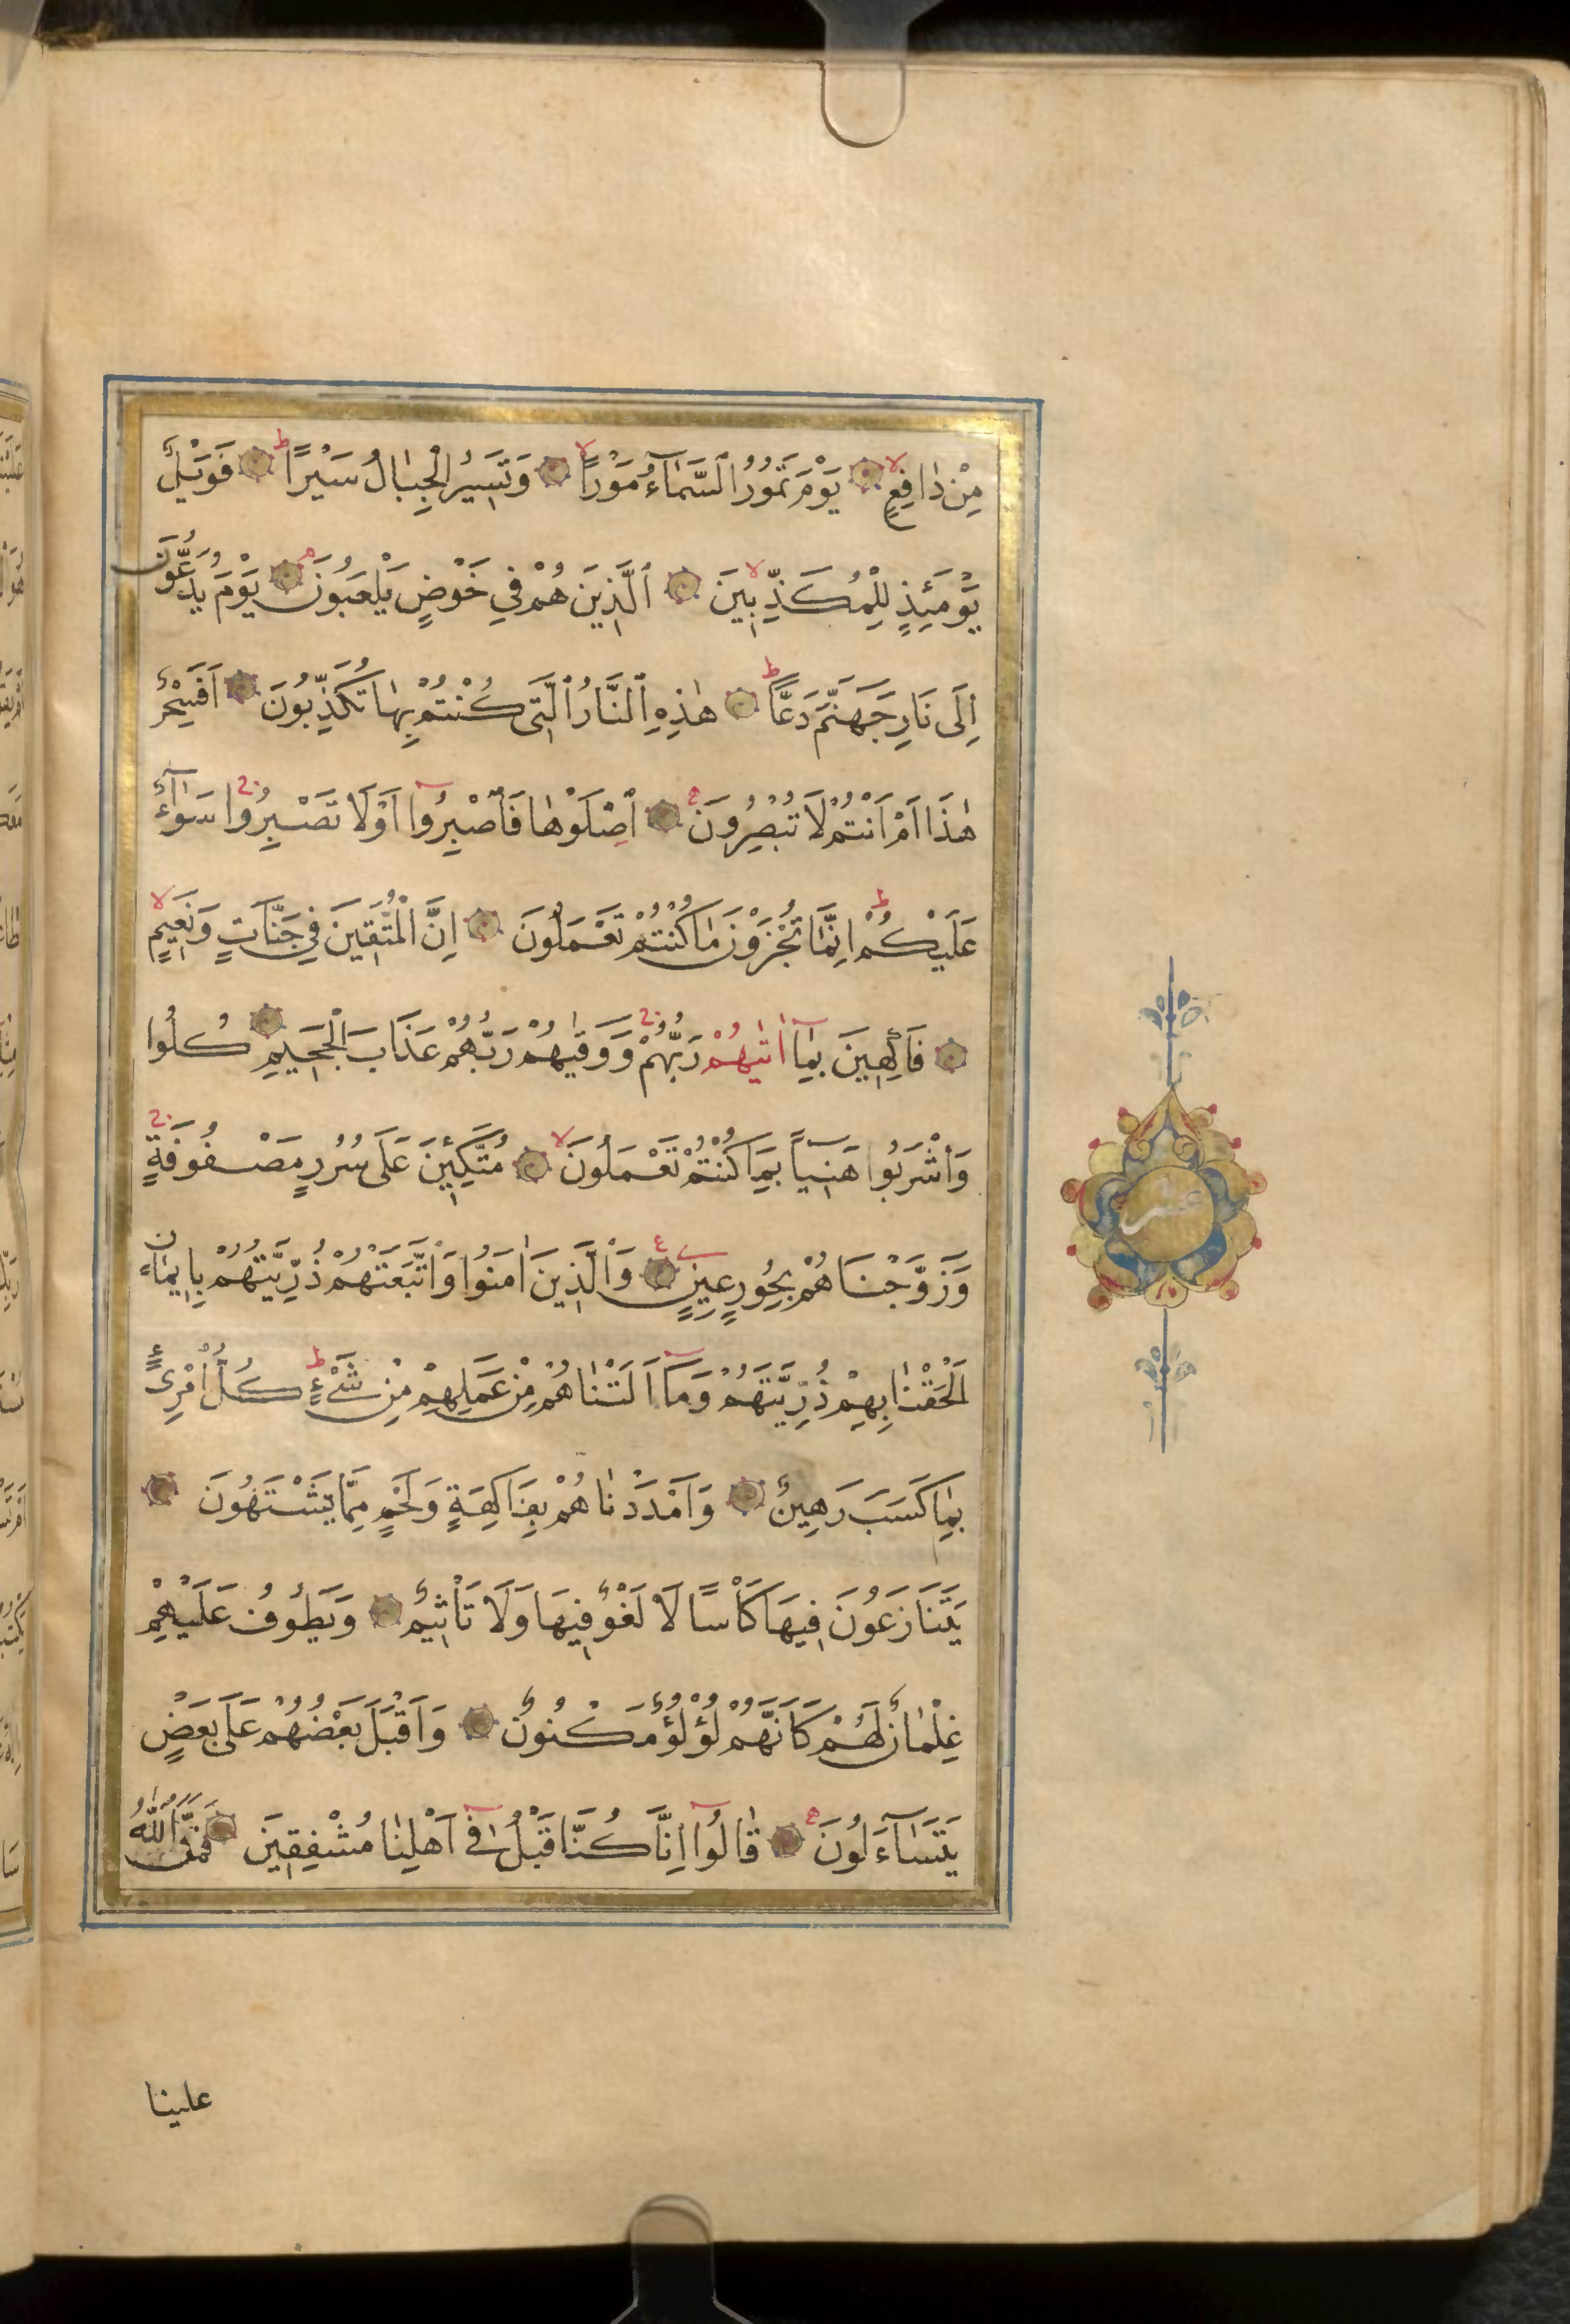 مِنْ دَافِعٍ يَوْمَ تَمُورُ ٱلسَّمَآءُ مَوْرًا وَتَسِيرُ الْجِبَالُ سَيْرًا فَوَيْلٌ
يَوْمَئِذٍ لِلْمُكَذِّبِينَ ٱلَّذِينَ هُمْ فِي خَوْضٍ يَلْعَبُونَ يَوْمَ يُدَعُّونَ
اِلَى نَارِ جَهَنَّمَ دَعًّا هٰذِهِ ٱلنَّارُ ٱلَّتِى كُنْتُمْ بِهَا تُكَذِّبُونَ اَفَسِحْرٌ
هٰذَا اَمْ اَنْتُمْ لَا تُبْصِرُونَ اِصْلَوْهَا فَاصْبِرُوا اَوْ لَا تَصْبِرُوا سَوَآءٌ
عَلَيْكُمْ اِنَّمَا تُجْزَوْنَ مَا كُنْتُمْ تَعْمَلُونَ اِنَّ الْمُتَّقِينَ فِي جَنَّاتٍ وَنَعِيمٍ
فَاكِهِينَ بِمَآ اٰتٰيهُمْ رَبُّهُمْ وَوَقٰيهُمْ رَبُّهُمْ عَذَابَ الْجَحِيمِ كُلُوا
وَاشْرَبُوا هَنِيئًا بِمَا كُنْتُمْ تَعْمَلُونَ مُتَّكِئِينَ عَلَى سُرُرٍ مَصْفُوفَةٍ
وَزَوَّجْنَاهُمْ بِحُورٍ عِينٍ وَالَّذِينَ اٰمَنُوا وَاتَّبَعَتْهُمْ ذُرِّيَّتُهُمْ بِاِيمَانٍ
اَلْحَقْنَا بِهِمْ ذُرِّيَّتَهُمْ وَمَآ اَلَتْنَاهُمْ مِنْ عَمَلِهِمْ مِنْ شَىْءٍ كُلُّ امْرِئٍ
بِمَا كَسَبَ رَهِينٌ وَاَمْدَدْنَاهُمْ بِفَاكِهَةٍ وَلَحْمٍ مِمَّا يَشْتَهُونَ
يَتَنَازَعُونَ فِيهَا كَأْسًا لَا لَغْوٌ فِيهَا وَلَا تَأْثِيمٌ وَيَطُوفُ عَلَيْهِمْ
غِلْمَانٌ لَهُمْ كَاَنَّهُمْ لُؤْلُؤٌ مَكْنُونٌ وَاَقْبَلَ بَعْضُهُمْ عَلَى بَعْضٍ
يَتَسَآءَلُونَ قَالُوٓا اِنَّا كُنَّا قَبْلُ فِىٓ اَهْلِنَا مُشْفِقِينَ فَمَنَّ اللّٰهُ
علينا
عشر